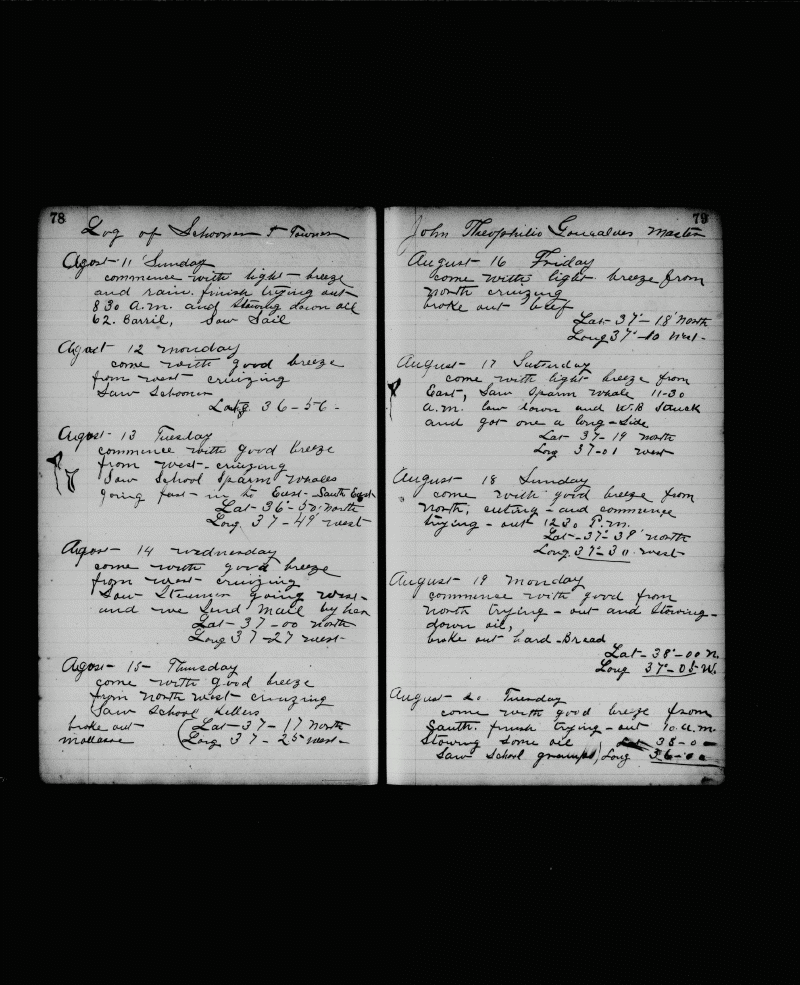 78
Log of Schooner J Towner
Agost 11 Sunday
commence with light breeze
and rain. finish trying out
8 30 A.m. and stowing down oil
62. Barril, Saw Sail
Agost 12 monday
come with good breeze
from west cruizing
Saw Schooner
36-56-
Agost 13 Tuesday
commence with good breeze
from west-cruizing
Saw School Sparm Whales
going fast- to East-South East
Lat-36°-50' North
Long. 37-49' west-
Agost- 14 wednesday
come with good breeze
from west cruizing
Saw Steamer going west-
and we Send mail by her
Lat-37-00 north
Long 37-27 west-
Agost- 15- Thursday
come with good breeze
from north west cruizing
Saw School killers
broke out (Lat-37-17 North
mollasse (Long 37-25 west-
79
John Theophilio Goncalves master
August 16 Friday
come with light breeze from
north cruizing
broke out bief
Lat-37°-18' North
Long 37°-10 West-
August- 17 Saturday
come with light breeze from
East, Saw Sparm Whale 11-30
a.m. low down and W.B Struck
and got one a long-Side
Lat 37-19 north
Long 37-01 west
August- 18 Sunday
come with good breeze from
north, cuting-and commence
trying-out 1230 P.m.
Lat-37°-38' north
Long. 37°-30. west-
August 19 monday
commence with good from
north trying-out and Stowing-
down oil,
broke out hard-Bread
Lat-38°-00 N.
Long 37°-05 W.
August- 20 Tuesday
come with good breeze from
South. finish trying-out 10 a.m.
Stowing Some oil Lat 38-0-
Saw School Long 36-00